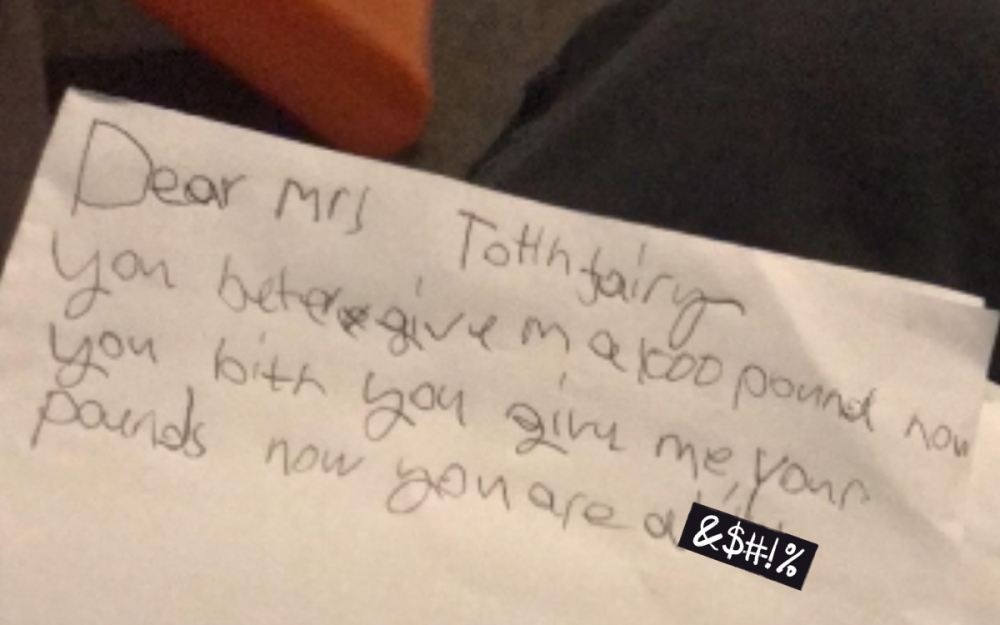 Dear Mrs Totthfairy
you beter give m a 1000 pound now
you bith you give me, your
pounds now you are a &$#!%